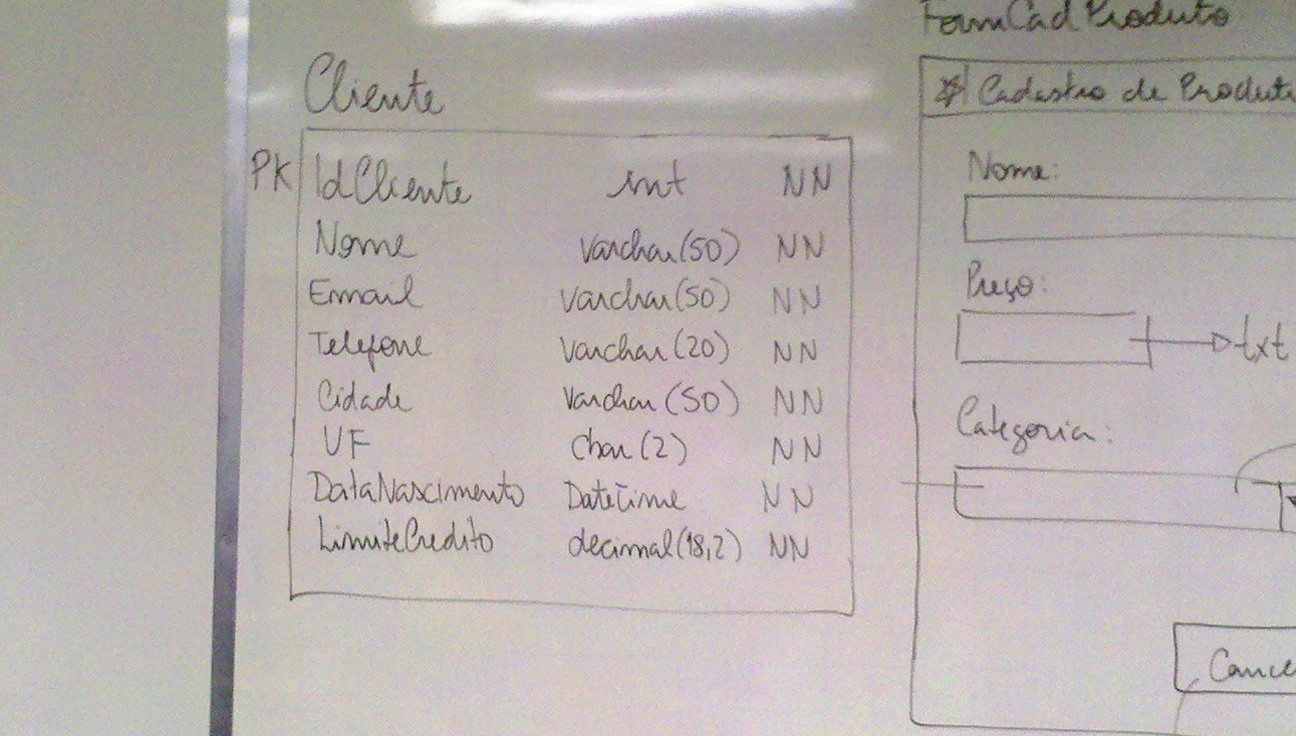 Cliente
PK IdCliente int NN
Nome varchar(50) NN
Email varchar(50) NN
Telefone varchar(20) NN
Cidade varchar(50) NN
UF char(2) NN
DataNascimento DateTime NN
LimiteCredito decimal(18,2) NN
FormCadProduto
Cadastro de Produt
Nome:
Preço:
txt
Categoria:
Cance